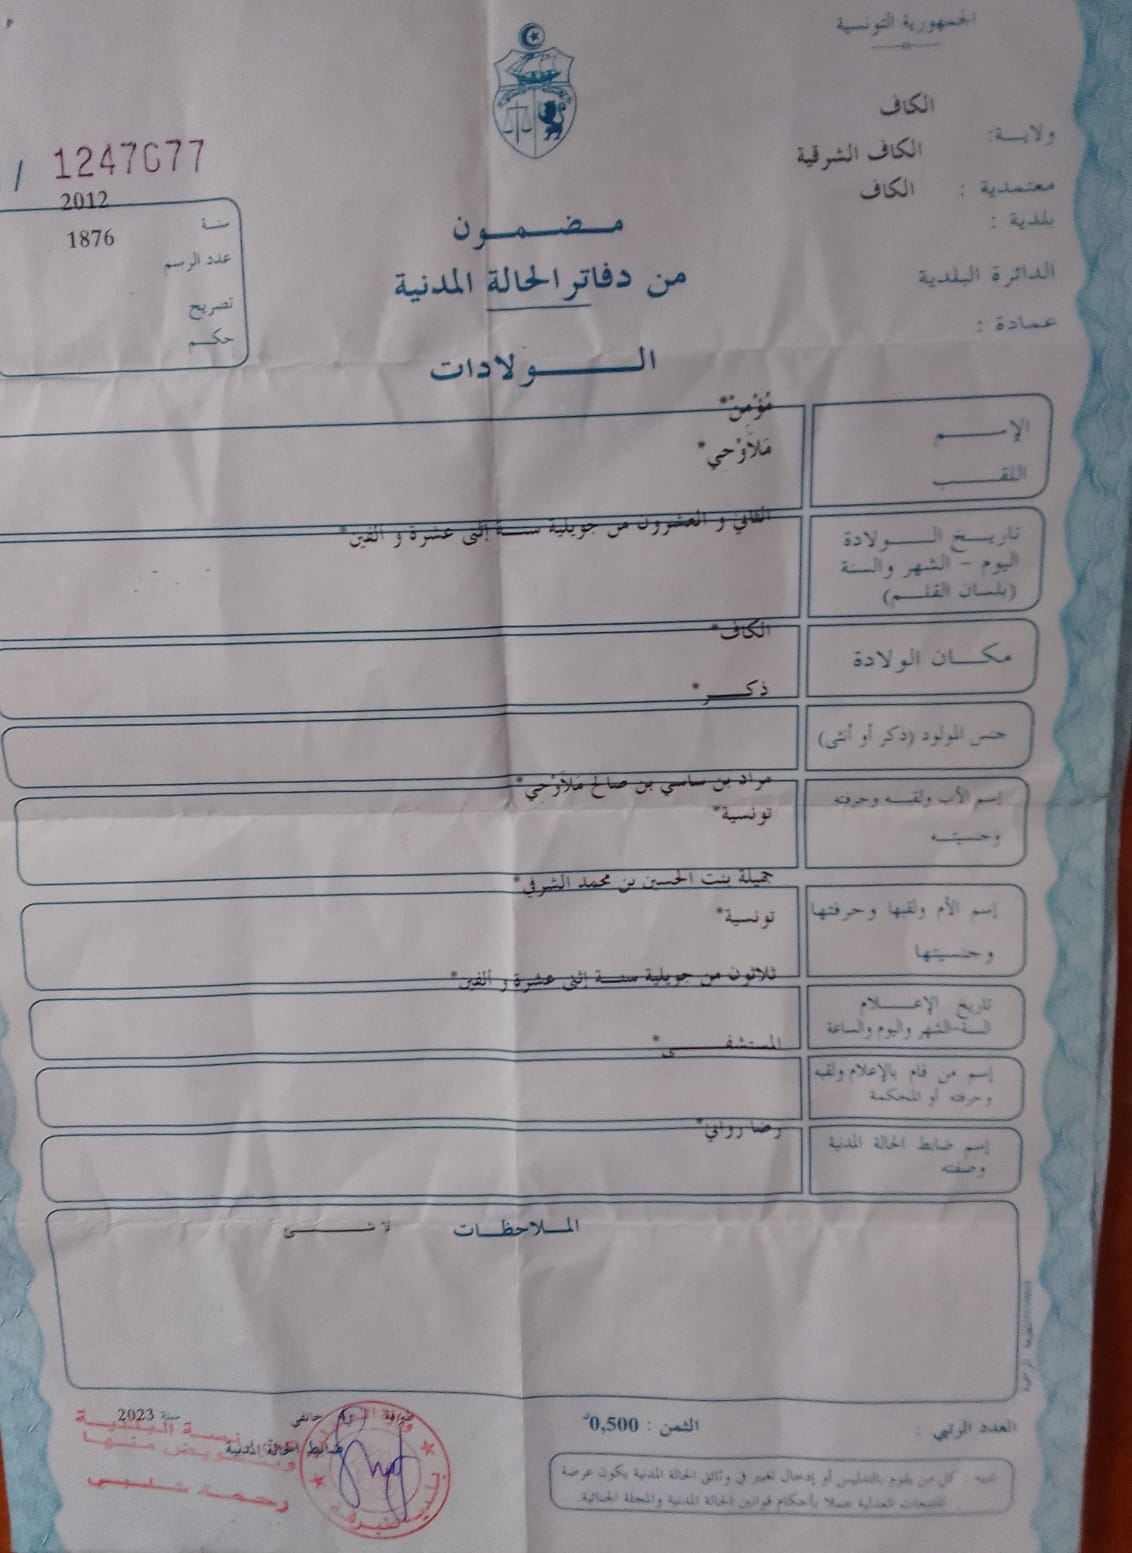 الجمهورية التونسية
ولاية: الكاف
معتمدية : الكاف الشرقية
بلدية : الكاف
الدائرة البلدية
عمادة :
/ 1247677
سنة 2012
عدد الرسم 1876
تصريح
حكم
مضمون
من دفاتر الحالة المدنية
الولادات
الإسم مُؤْمِنْ*
اللقب مَلاَوْحِي*
تاريخ الولادة
اليوم - الشهر والسنة
(بلسان القلم)
الثاني و العشرون من جويلية سنة إثنى عشرة و ألفين*
مكان الولادة
الكاف*
جنس المولود (ذكر أو أنثى)
ذكر*
إسم الأب ولقبه وحرفته
وجنسيته
مراد بن ساسي بن صالح مَلاَوْحِي*
تونسية*
إسم الأم ولقبها وحرفتها
وجنسيتها
جميلة بنت الحسين بن محمد الشرفي*
تونسية*
تاريخ الإعلام
السنة-الشهر واليوم والساعة
ثلاثون من جويلية سنة إثنى عشرة و ألفين*
إسم من قام بالإعلام ولقبه
وحرفته أو المحكمة
المستشفى*
إسم ضابط الحالة المدنية
وصفته
رضا رواني*
الملاحظات لا شيء
العدد الرتبي :
الثمن : 0,500د
سنة 2023
ضابط الحالة المدنية
تنبيه : كل من يقوم بالتدليس أو إدخال تغيير في وثائق الحالة المدنية يكون عرضة
للتتبعات العدلية عملا بأحكام قوانين الحالة المدنية والمجلة الجنائية.